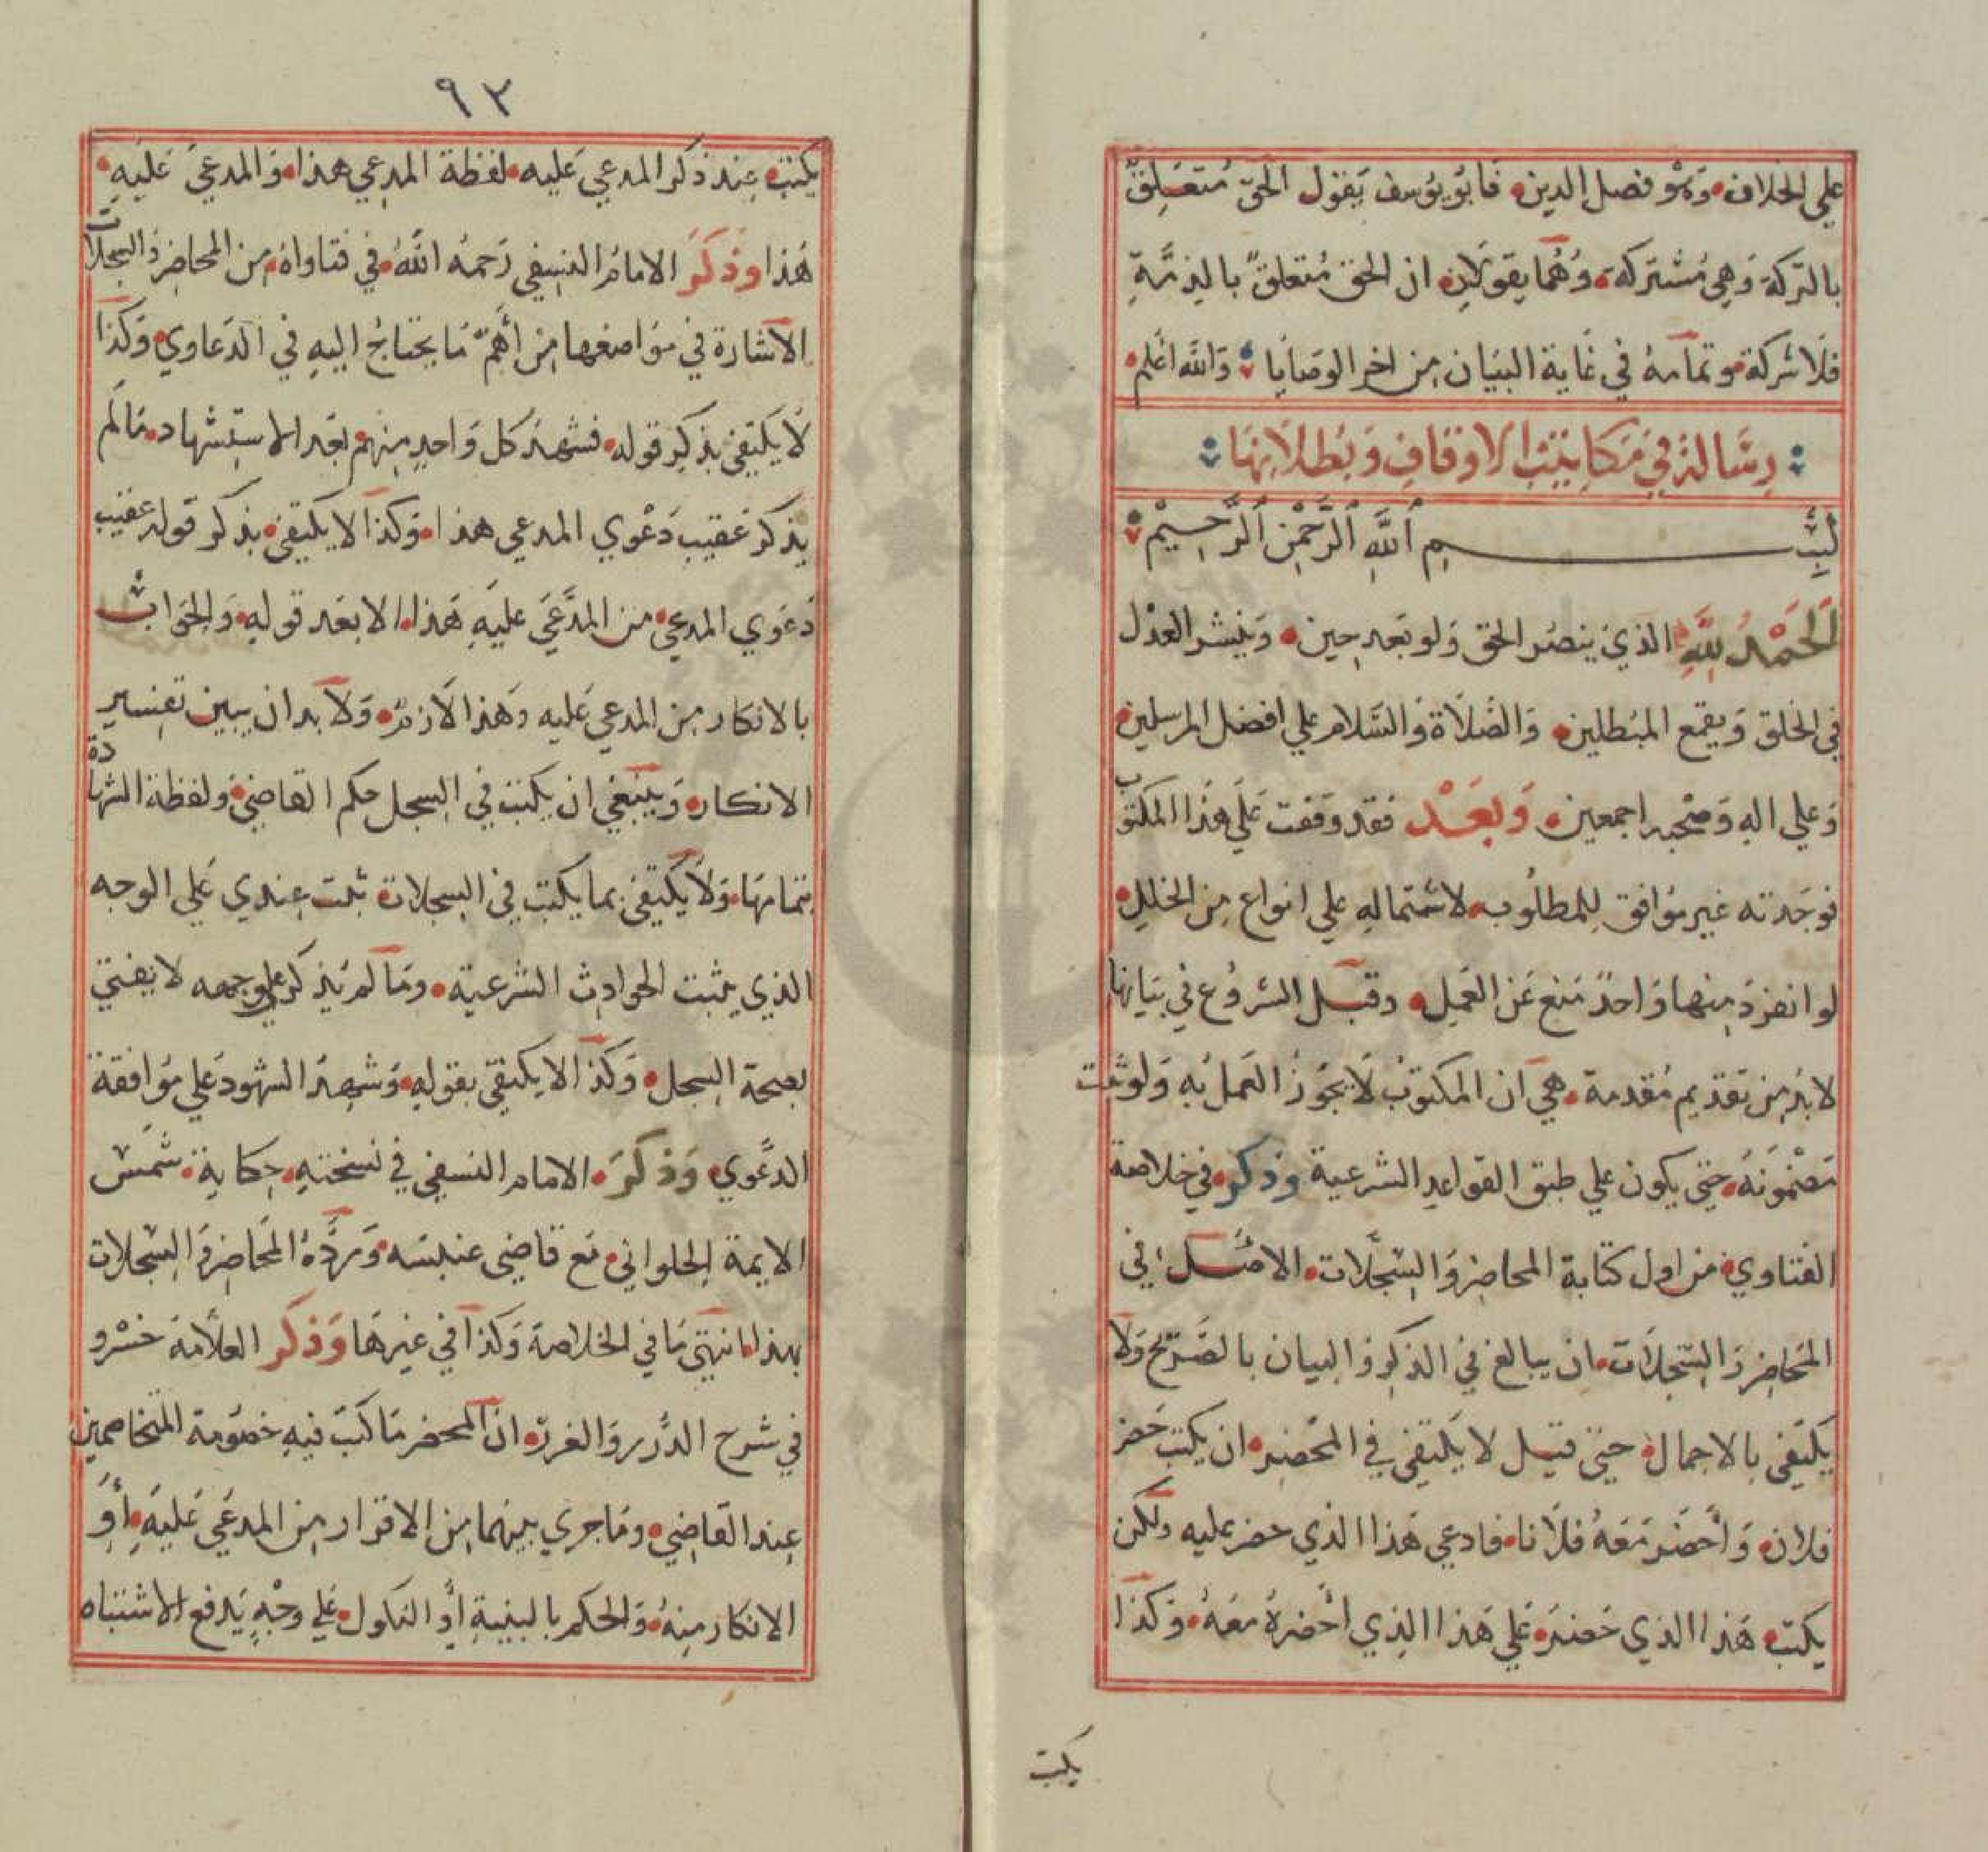 علي الخلاف وهو فصل الدين فابو يوسف يقول الحق متعلق
بالتركة وهي مشتركة وهما يقولان ان الحق متعلق بالذمة
فلا شركة وتمامه في غاية البيان من اخر الوصايا والله اعلم
رسالة في مكاتيب الاوقاف وبطلانها
بسم الله الرحمن الرحيم
الحمد لله الذي ينصر الحق ولو بعد حين وينشر العدل
في الخلق ويقمع المبطلين والصلاة والسلام علي افضل المرسلين
وعلي اله وصحبه اجمعين وبعد فقد وقفت علي هذا المكتوب
فوجدته غير موافق للمطلوب لاشتماله علي انواع من الخلل
لو انفرد منها واحد منع عن العمل وقبل الشروع في بيانها
لابد من تقديم مقدمة هي ان المكتوب لا يجوز العمل به ولو ثبت
مضمونه حتي يكون علي طبق القواعد الشرعية وذكر في خلاصة
الفتاوي من اول كتابة المحاضر والسجلات الاصل في
المحاضر والسجلات ان يبالغ في الذكر والبيان بالصريح ولا
يكتفي بالاجمال حتي قيل لا يكتفي في المحضر ان يكتب حضر
فلان واحضر معه فلانا فادعي هذا الذي حضر عليه ولكن
يكتب هذا الذي حضر علي هذا الذي احضره معه وكذا
يكتب
٩٣
يكتب عند ذكر المدعي عليه لفظة المدعي هذا والمدعي عليه
هذا وذكر الامام النسفي رحمه الله في فتاواه من المحاضر والسجلات
الاشارة في مواضعها من اهم ما يحتاج اليه في الدعاوي وكذا
لا يكتفي بذكر قوله فشهد كل واحد منهم بعد الاستشهاد مالم
يذكر عقيب دعوي المدعي هذا وكذا لا يكتفي بذكر قوله عقيب
دعوي المدعي من المدعي عليه هذا الا بعد قوله والجواب
بالانكار من المدعي عليه وهذا لازم ولا بد ان يبين تفسير
الانكار وينبغي ان يكتب في السجل حكم القاضي ولفظة الشهادة
بتمامها ولا يكتفي بما يكتب في السجلات ثبت عندي علي الوجه
الذي يثبت الحوادث الشرعية وما لم يذكر علي وجهه لا يفتي
بصحة السجل وكذا لا يكتفي بقوله وشهد الشهود علي موافقة
الدعوي وذكر الامام النسفي في نسخته حكاية شمس
الايمة الحلواني مع قاضي عنبسه ورده المحاضر والسجلات
بهذا انتهي ما في الخلاصة وكذا في غيرها وذكر العلامة خسرو
في شرح الدرر والغرر ان المحضر ما كتب فيه خصومة المتخاصمين
عند القاضي وما جري بينهما من الاقرار من المدعي عليه او
الانكار منه والحكم بالبينة او النكول علي وجه يدفع الاشتباه